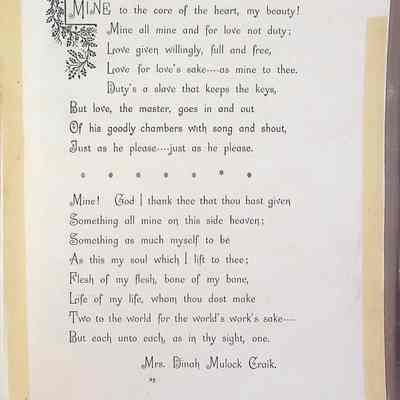 MINE to the core of the heart, my beauty!
Mine all mine and for love not duty;
Love given willingly, full and free,
Love for love's sake----as mine to thee.
Duty's a slave that keeps the keys,
But love, the master, goes in and out
Of his goodly chambers with song and shout,
Just as he please----just as he please.
* * * * * * *
Mine! God I thank thee that thou hast given
Something all mine on this side heaven;
Something as much myself to be
As this my soul which I lift to thee;
Flesh of my flesh, bone of my bone,
Life of my life, whom thou dost make
Two to the world for the world's work's sake----
But each unto each, as in thy sight, one.
Mrs. Dinah Mulock Craik.